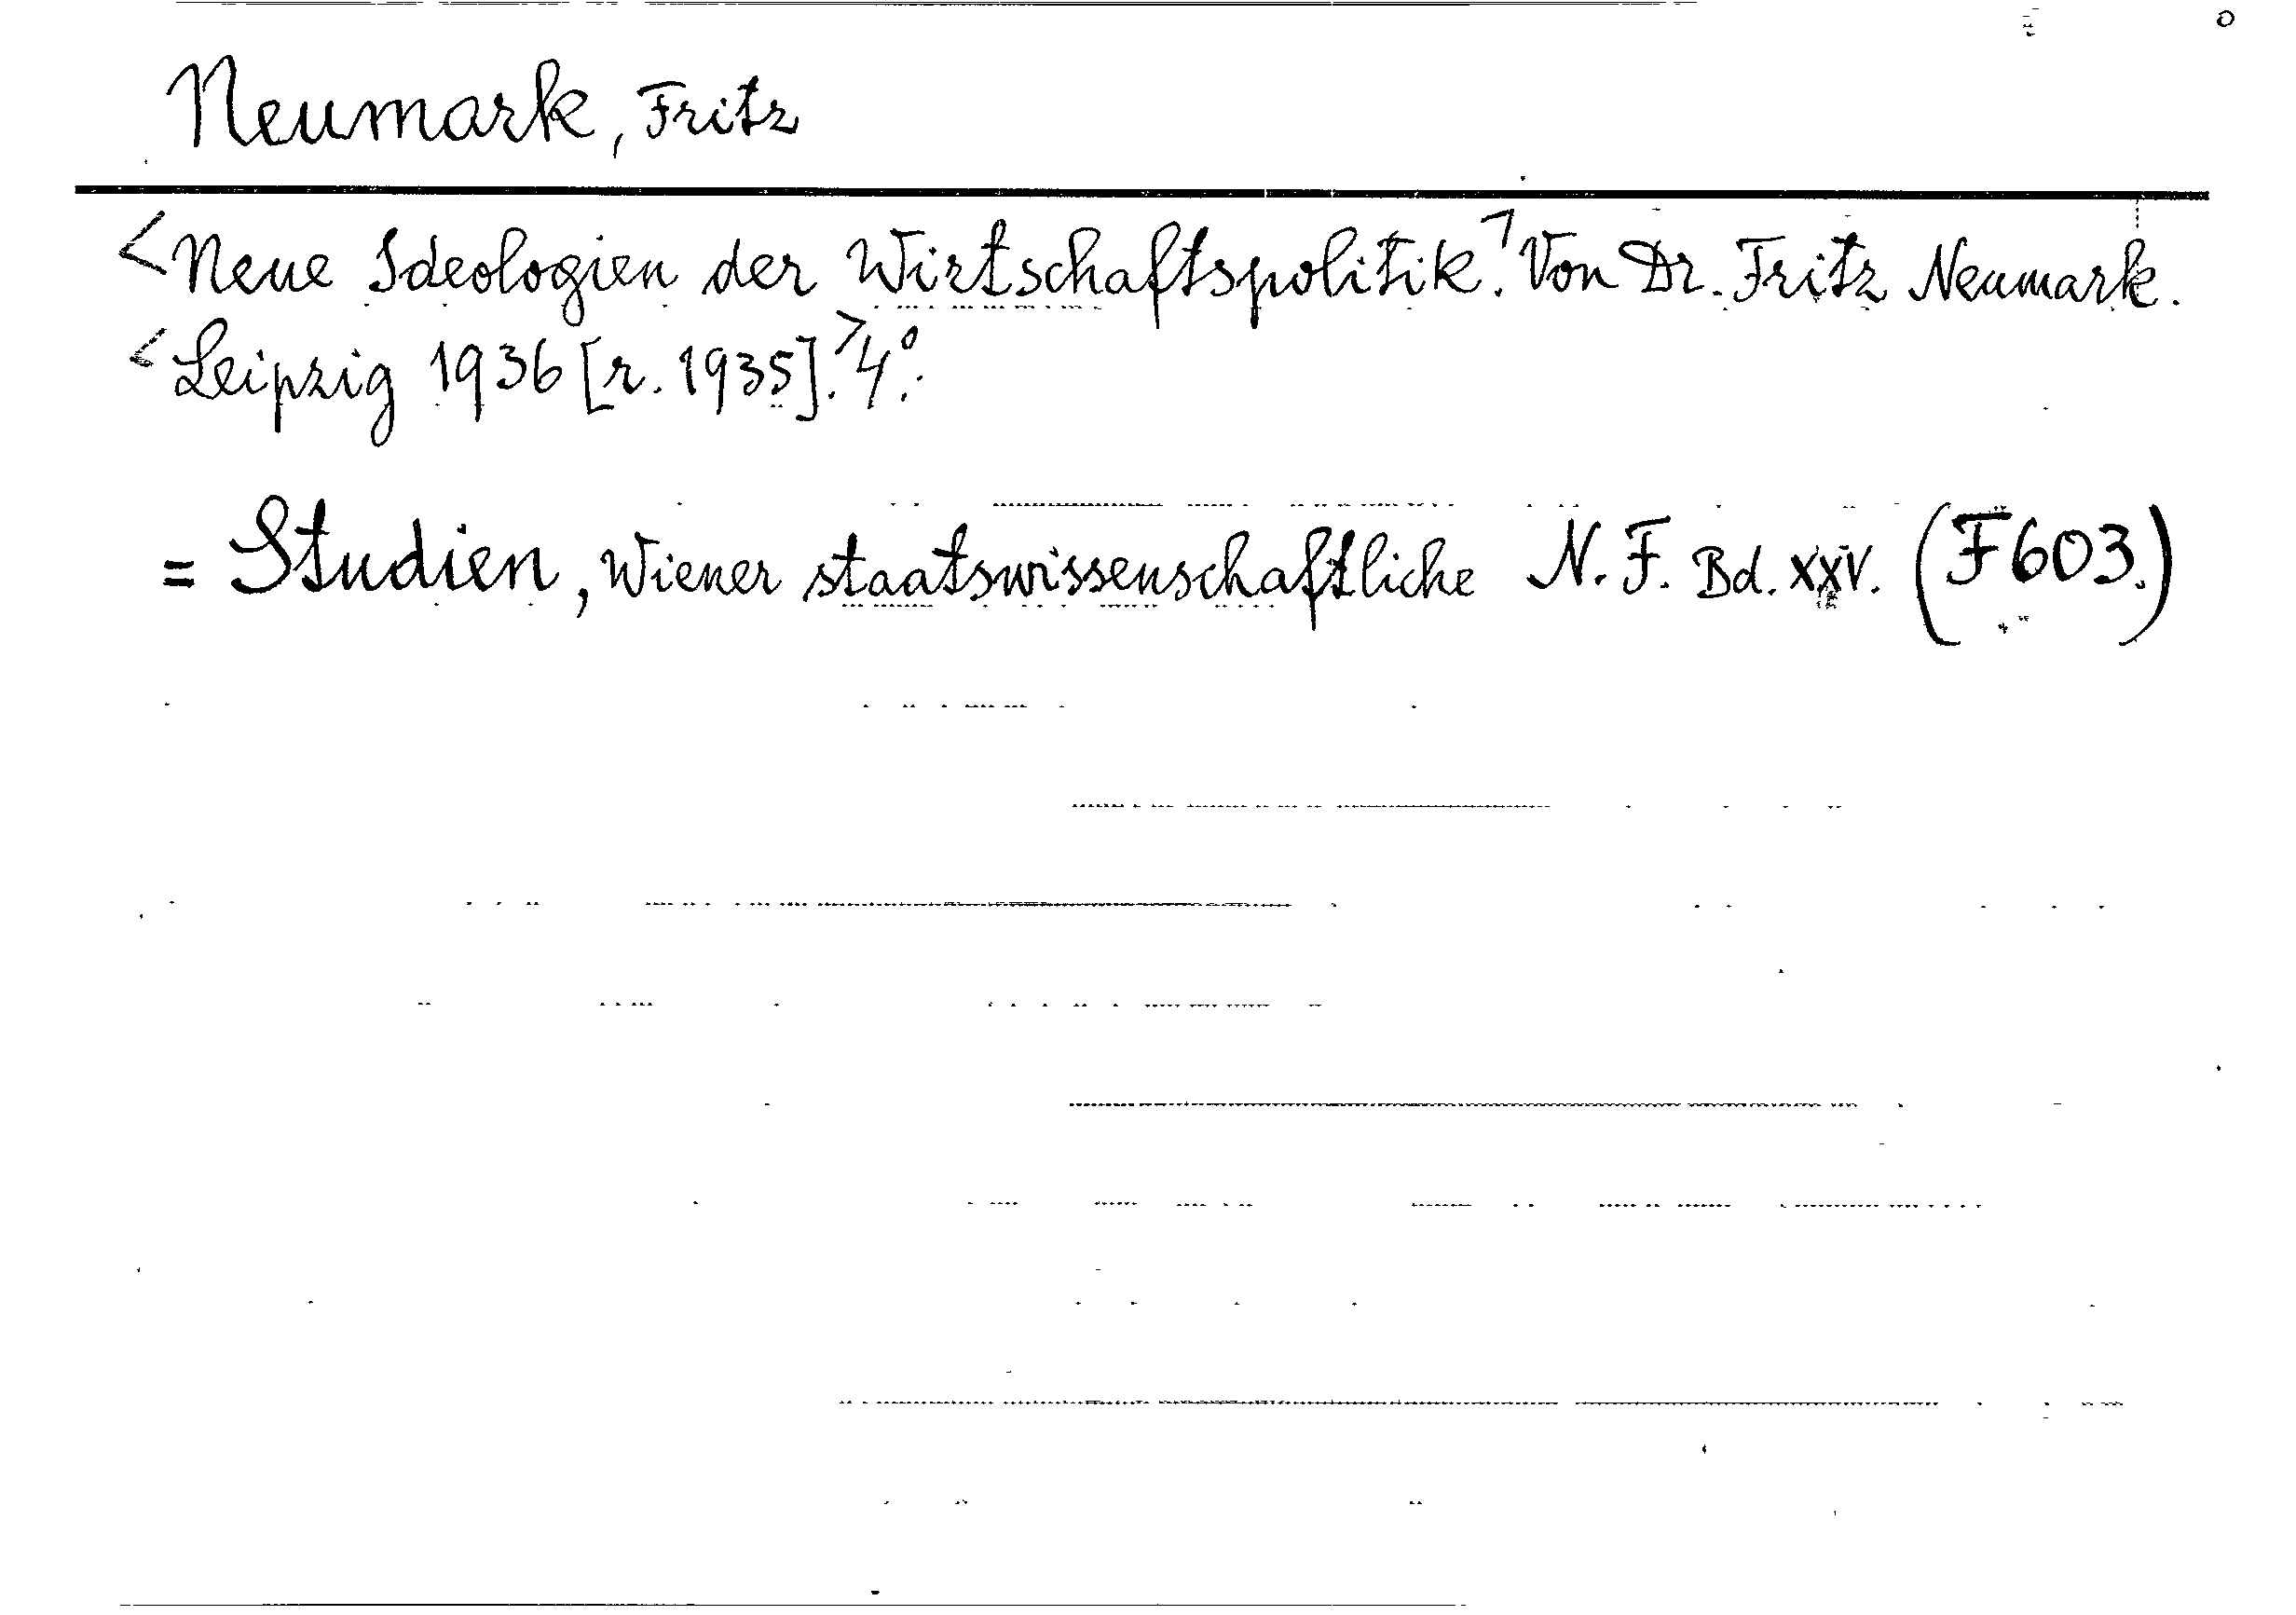 Neumark, Fritz
<Neue Ideologien der Wirtschaftspolitik.> Von Dr. Fritz Neumark.
<Leipzig 1936 [r. 1935].> 4°.
= Studien, Wiener staatswissenschaftliche N. F. Bd. XXV. (F603.)